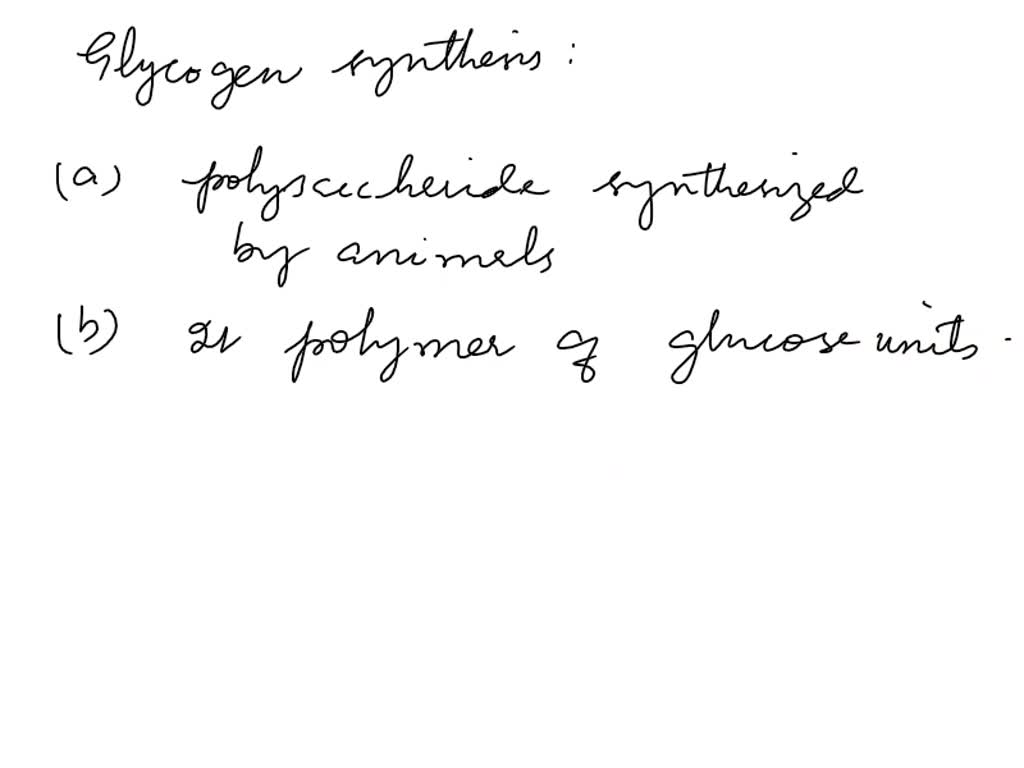 Glycogen synthesis :
(a) polysaccheride synthesized
by animels
(b) It polymer of glucose units .